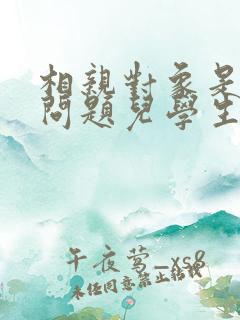 相親對象是
問題兒學生
午夜莺_xs8
未经同意禁止转载